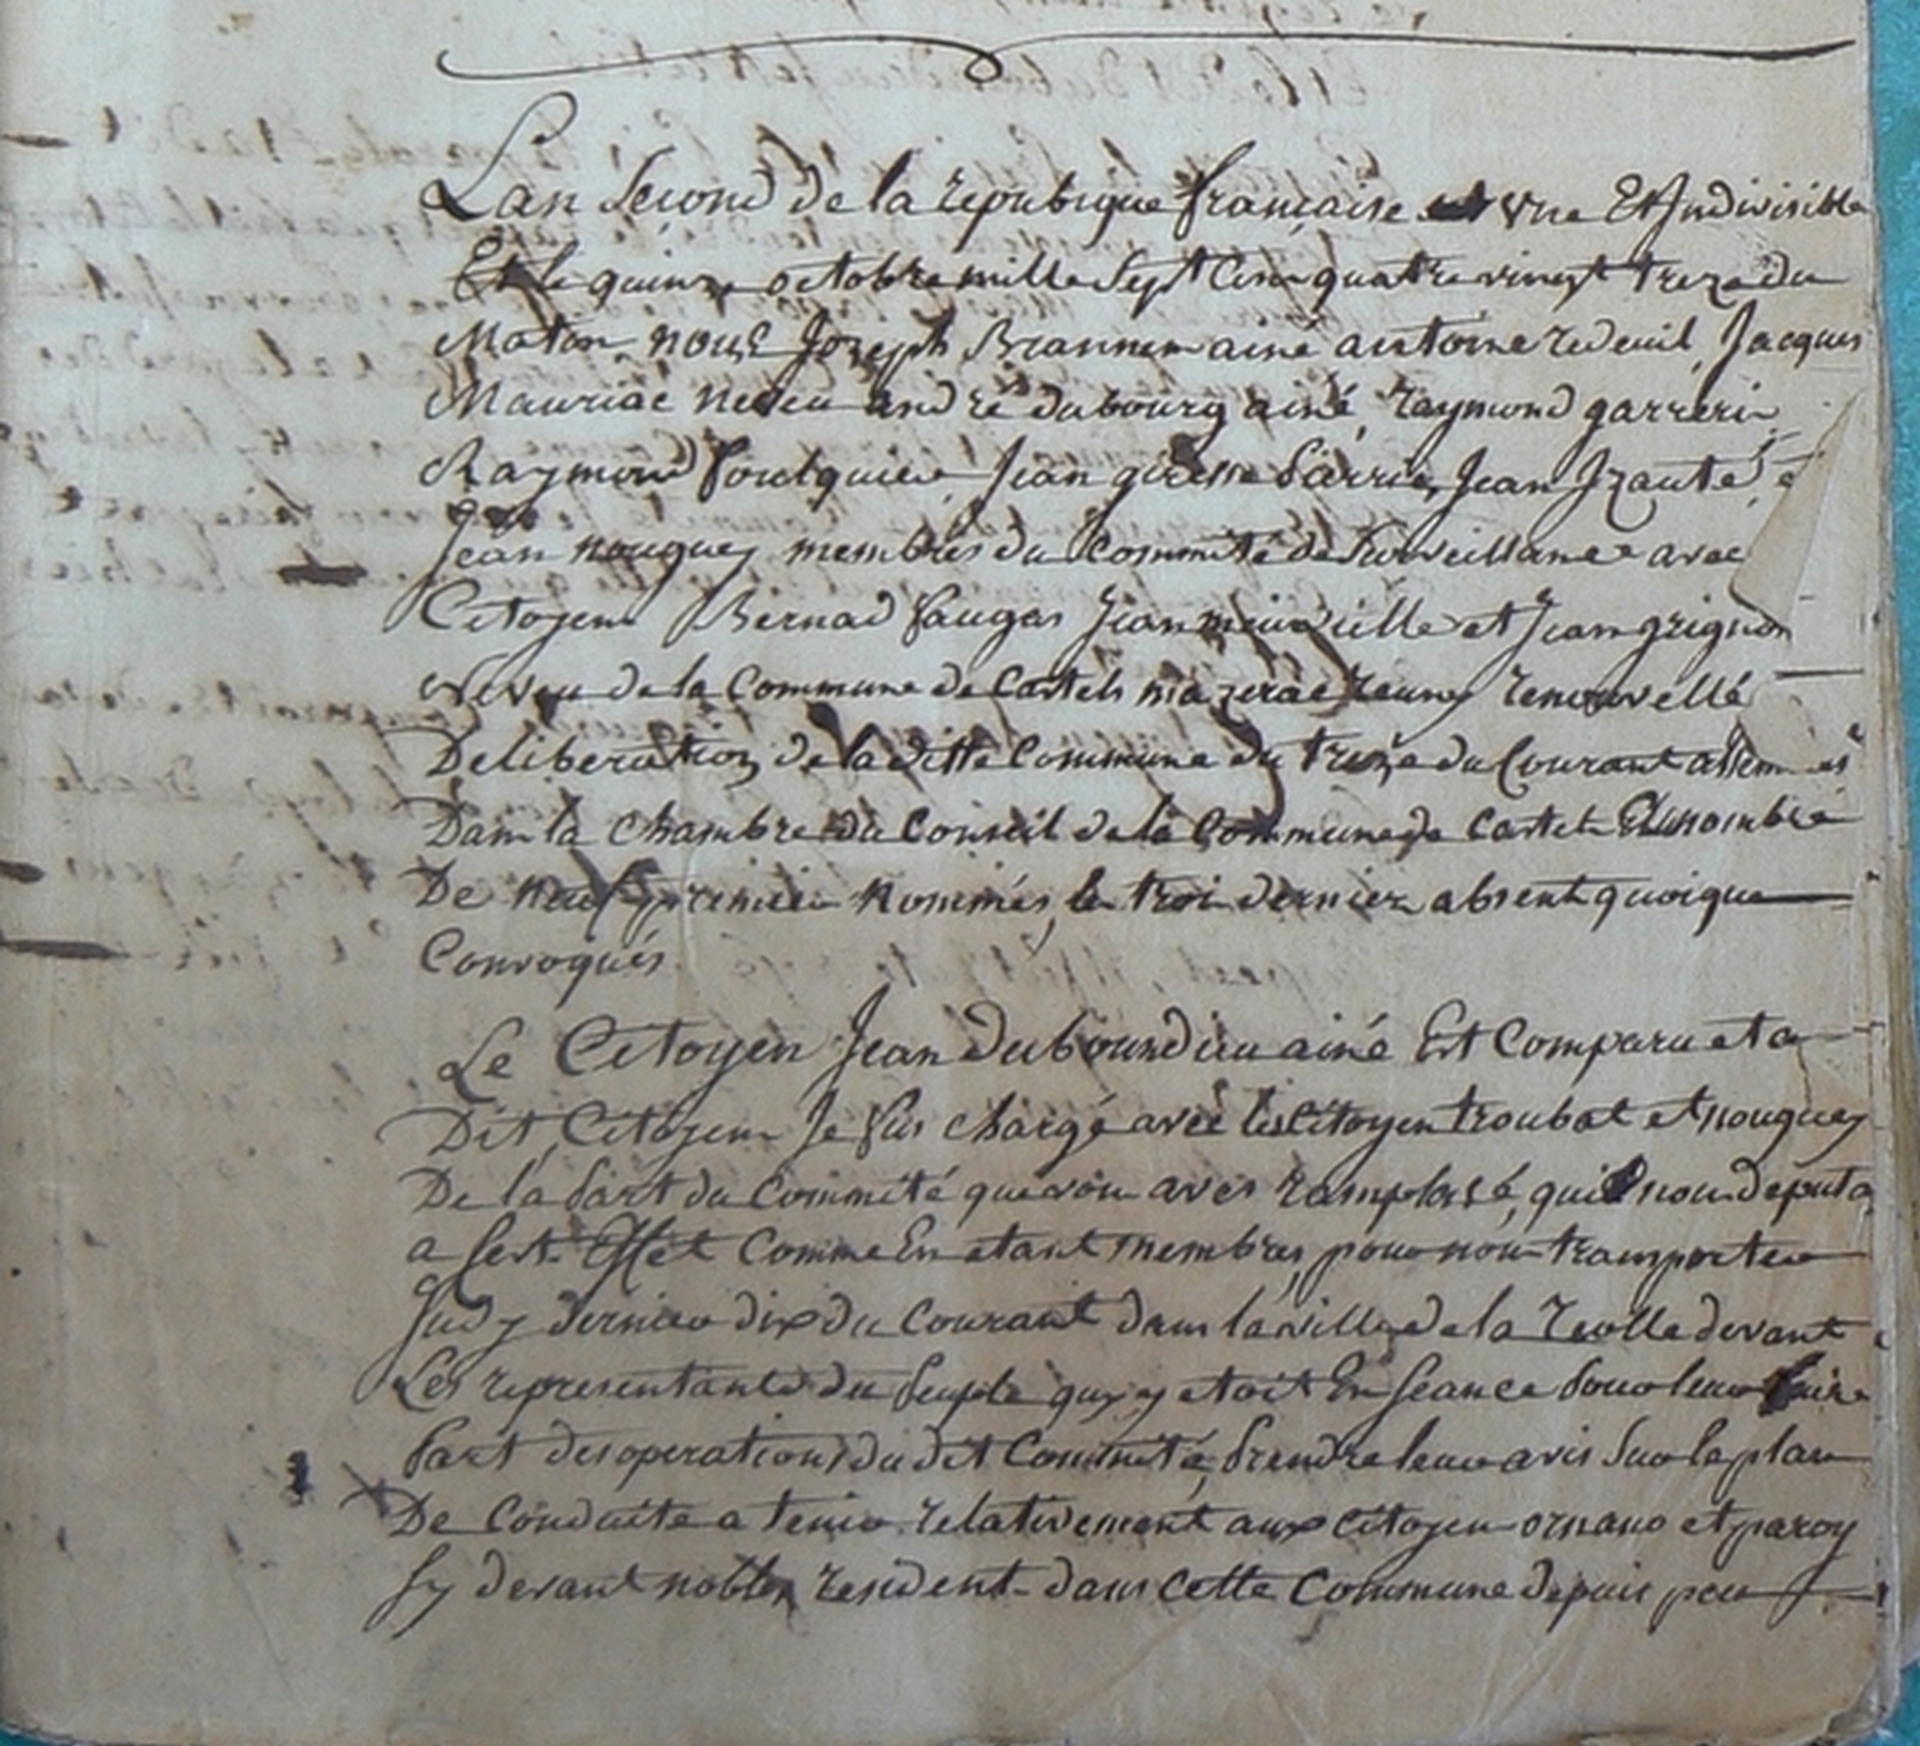 Lan Second de la repubique française une Et Indivisible
Et le quinze octobre mille Sept Cens quatre vingt treze du
Maton nous Joseph Brannens ainé antoine redeuil, Jacques
Mauriac neveu andré dubourg ainé, raymond garrerin
Raymond foulquier, Jean Jzauté,
Jean nouguey membres du Commité de Surveillance avec
Citoyens Bernad faugas Jean et Jean grignon
Neveu de la Commune de Castets mazerac reunes renouvellé
Deliberation de la ditte Commune du treize du Courant
Dans la chambre du Conseil de la Commune de Castets nombre
De neuf premiers nommés, les trois derniers absents quoique
Convoqués
Le Citoyen Jean dubourdieu ainé Est Comparu et a
Dit, Citoyens Je fus chargé avec les Citoyens troubat et nouguey
De la part du Commité que vous aves ramplasé, quil nous deputa
a sert Effet Comme En etant membres, pour nous transporter
Judy dernier dix du Courant dans la ville de la reolle devant
Les representants du Peuple quy y etoit En Seance Pour leur faire
Part des operations du dit Commité, Prendre leur avis Sur le plan
De Conduite a tenir relativement aux citoyens ornano et paroy
Sy devant nobles resident dans cette Commune depuis peu